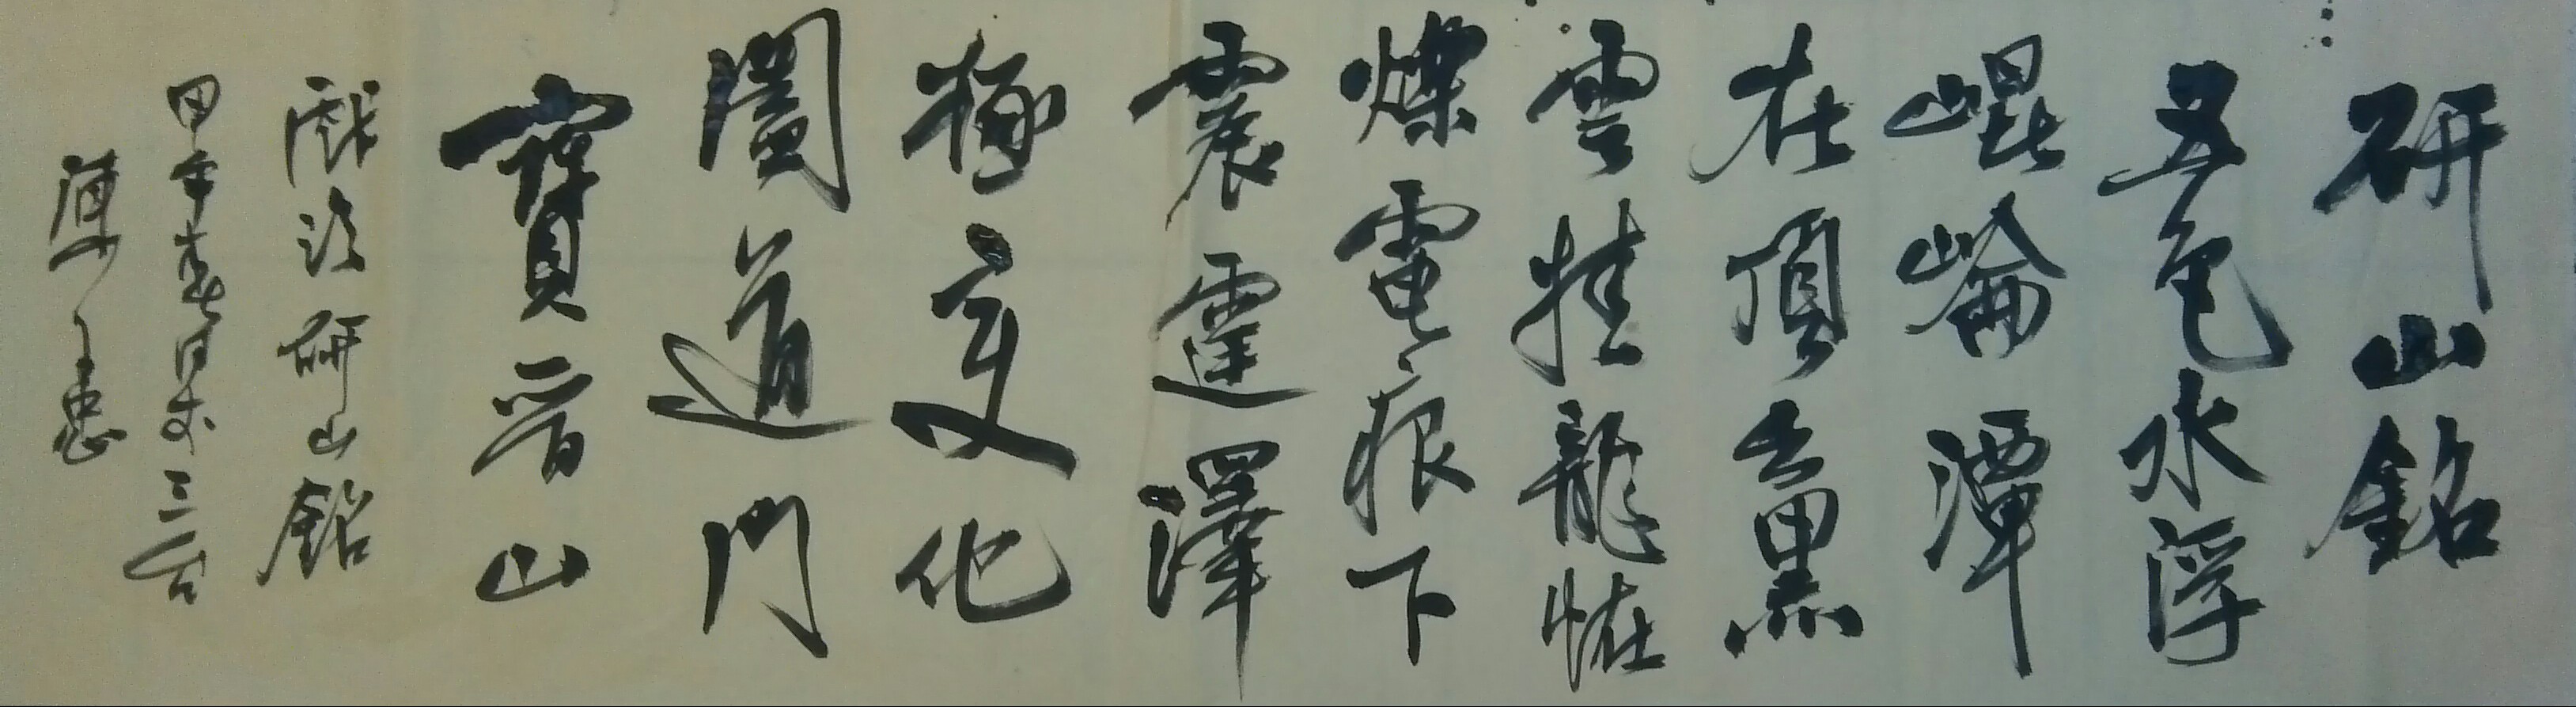 研山銘
五色水浮
崐崘潭
在頂出黑
雲挂龍恠
爍電痕下
震霆澤
極变化
闔道門
寶晉山
戲研山銘
甲午春日三台
陳忠